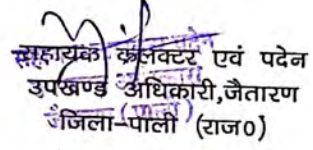 सहायक कलक्टर एवं पदेन
उपखण्ड अधिकारी,जैतारण
जिला-पाली (राज0)